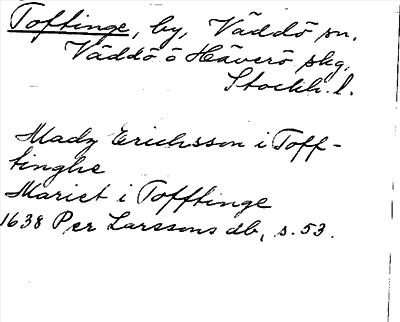 Toftinge, by, Väddö sn.
Väddö o Häverö skg,
Stockh. l.
Madz Erichsson i Toff-
tinghe
Mariet i Tofftinge
1638 Per Larssons db, s. 53.